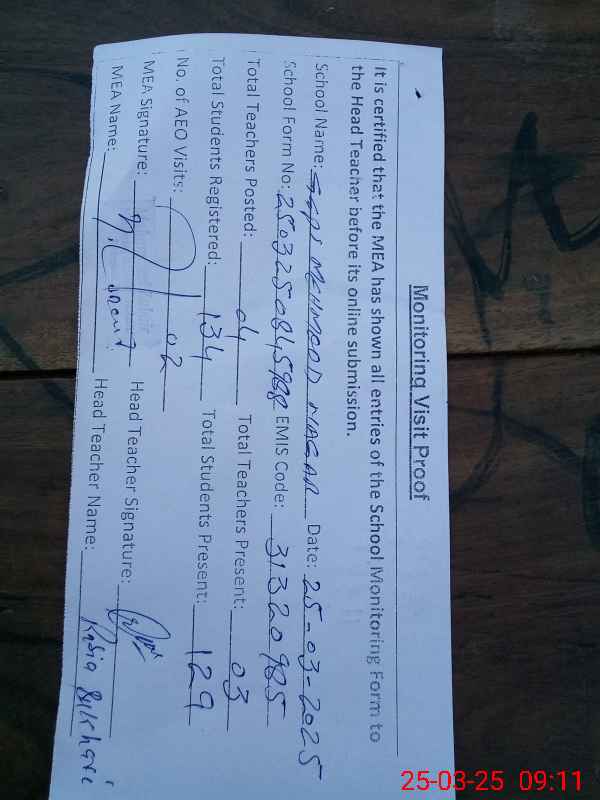 Monitoring Visit Proof
It is certified that the MEA has shown all entries of the School Monitoring Form to
the Head Teacher before its online submission.
School Name: MEHMOOD NAGAR Date: 25-03-2025
School Form No: 250325084598 EMIS Code: 31320985
Total Teachers Posted: 04 Total Teachers Present: 03
Total Students Registered: 134 Total Students Present: 129
No. of AEO Visits: 02
MEA Signature: Head Teacher Signature:
MEA Name: Head Teacher Name: Razia
25-03-25 09:11